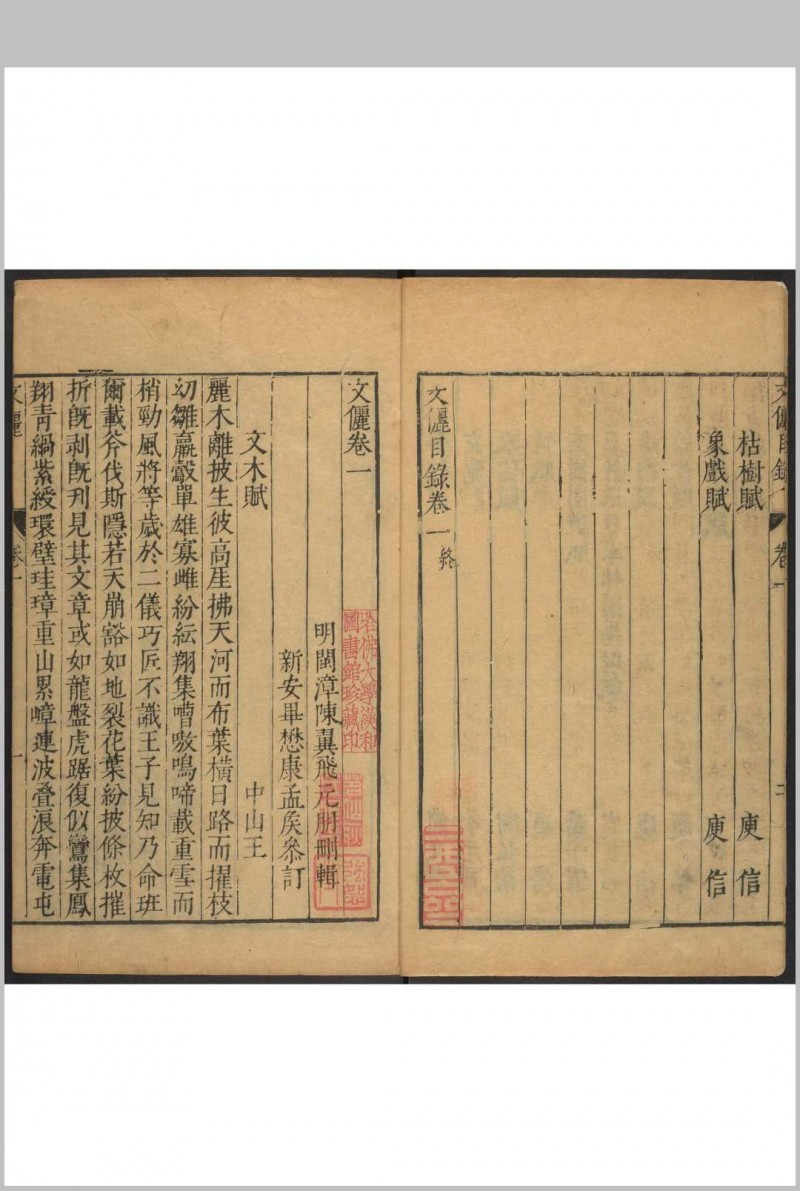 枯樹賦 庾信
象戲賦 庾信
文儷目錄卷一終
文儷卷一
明閩漳陳翼飛元朋刪輯
新安畢懋康孟侯參訂
文木賦 中山王
麗木離披生彼高崖拂天河而布葉橫日路而擢枝
幼雛羸鷇單雄寡雌紛紜翔集嘈嗷鳴啼載重雪而
梢勁風將等歲於二儀巧匠不識王子見知乃命班
爾載斧伐斯隱若天崩豁如地裂花葉紛披條枚摧
折既剥既刋見其文章或如龍盤虎踞復似鸞集鳳
翔青緺紫綬環璧珪璋重山累嶂連波叠浪奔電屯
哈佛大學漢和
圖書館珍藏印
卷一
一